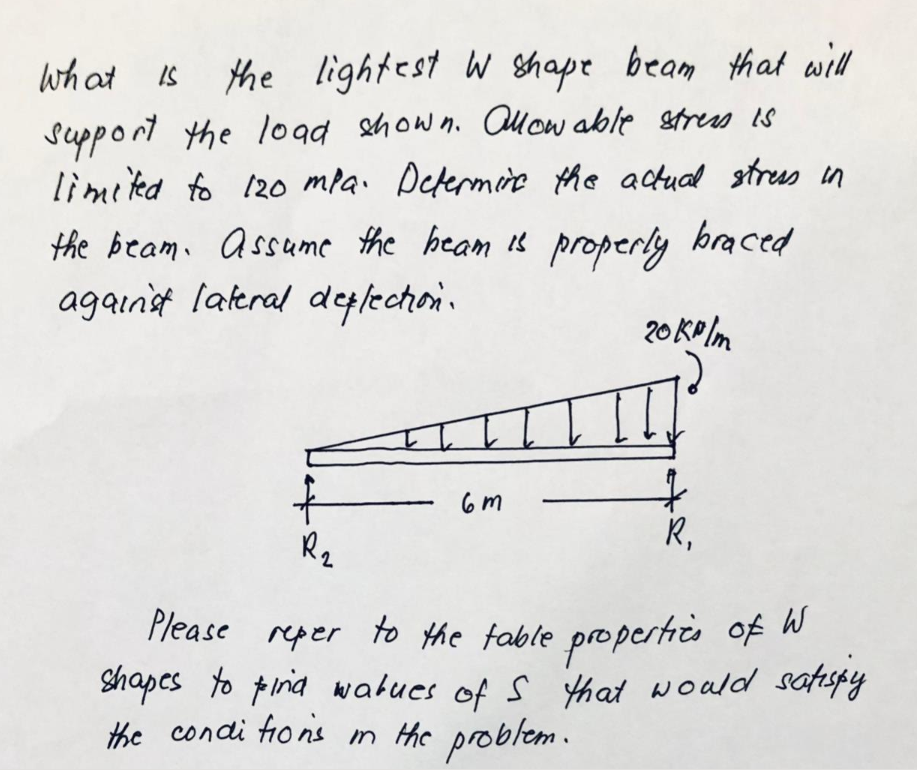 What is the lightest W shape beam that will
support the load shown. Allowable stress is
limited to 120 mPa. Determine the actual stress in
the beam. Assume the beam is properly braced
against lateral deflection.
20 KN/m
6 m
R2
R1
Please refer to the table properties of W
shapes to find values of S that would satisfy
the conditions in the problem.